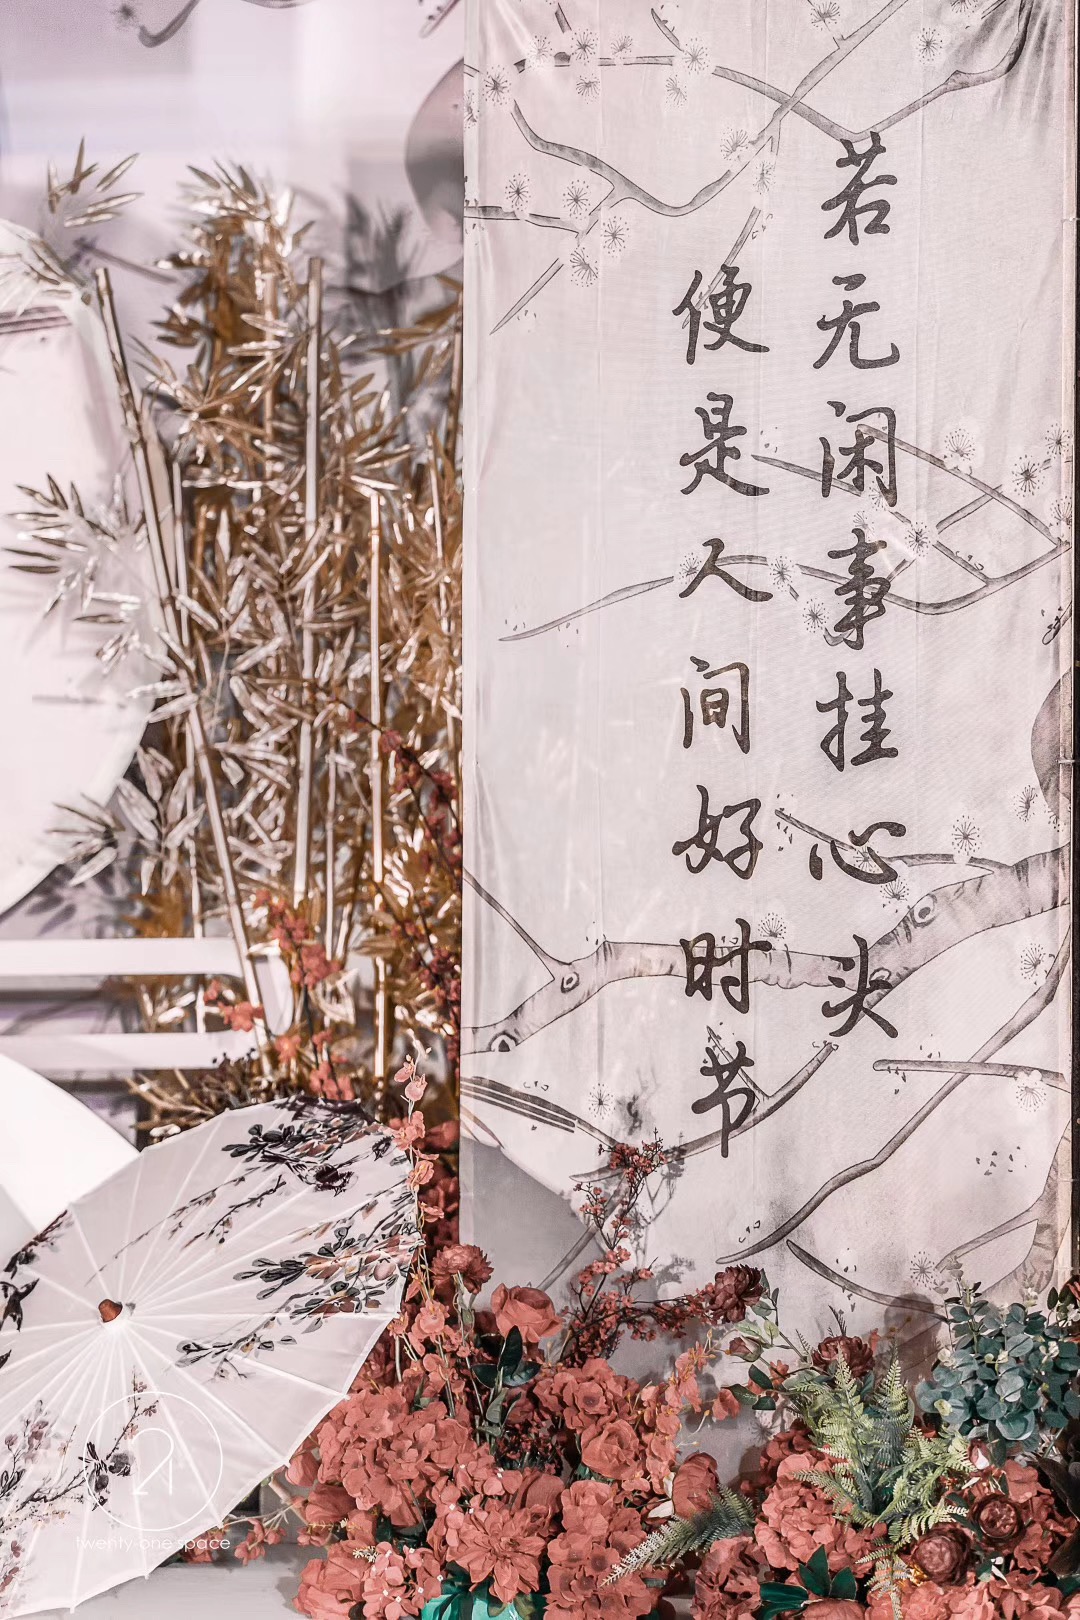 若无闲事挂心头
便是人间好时节
21
twenty-one space